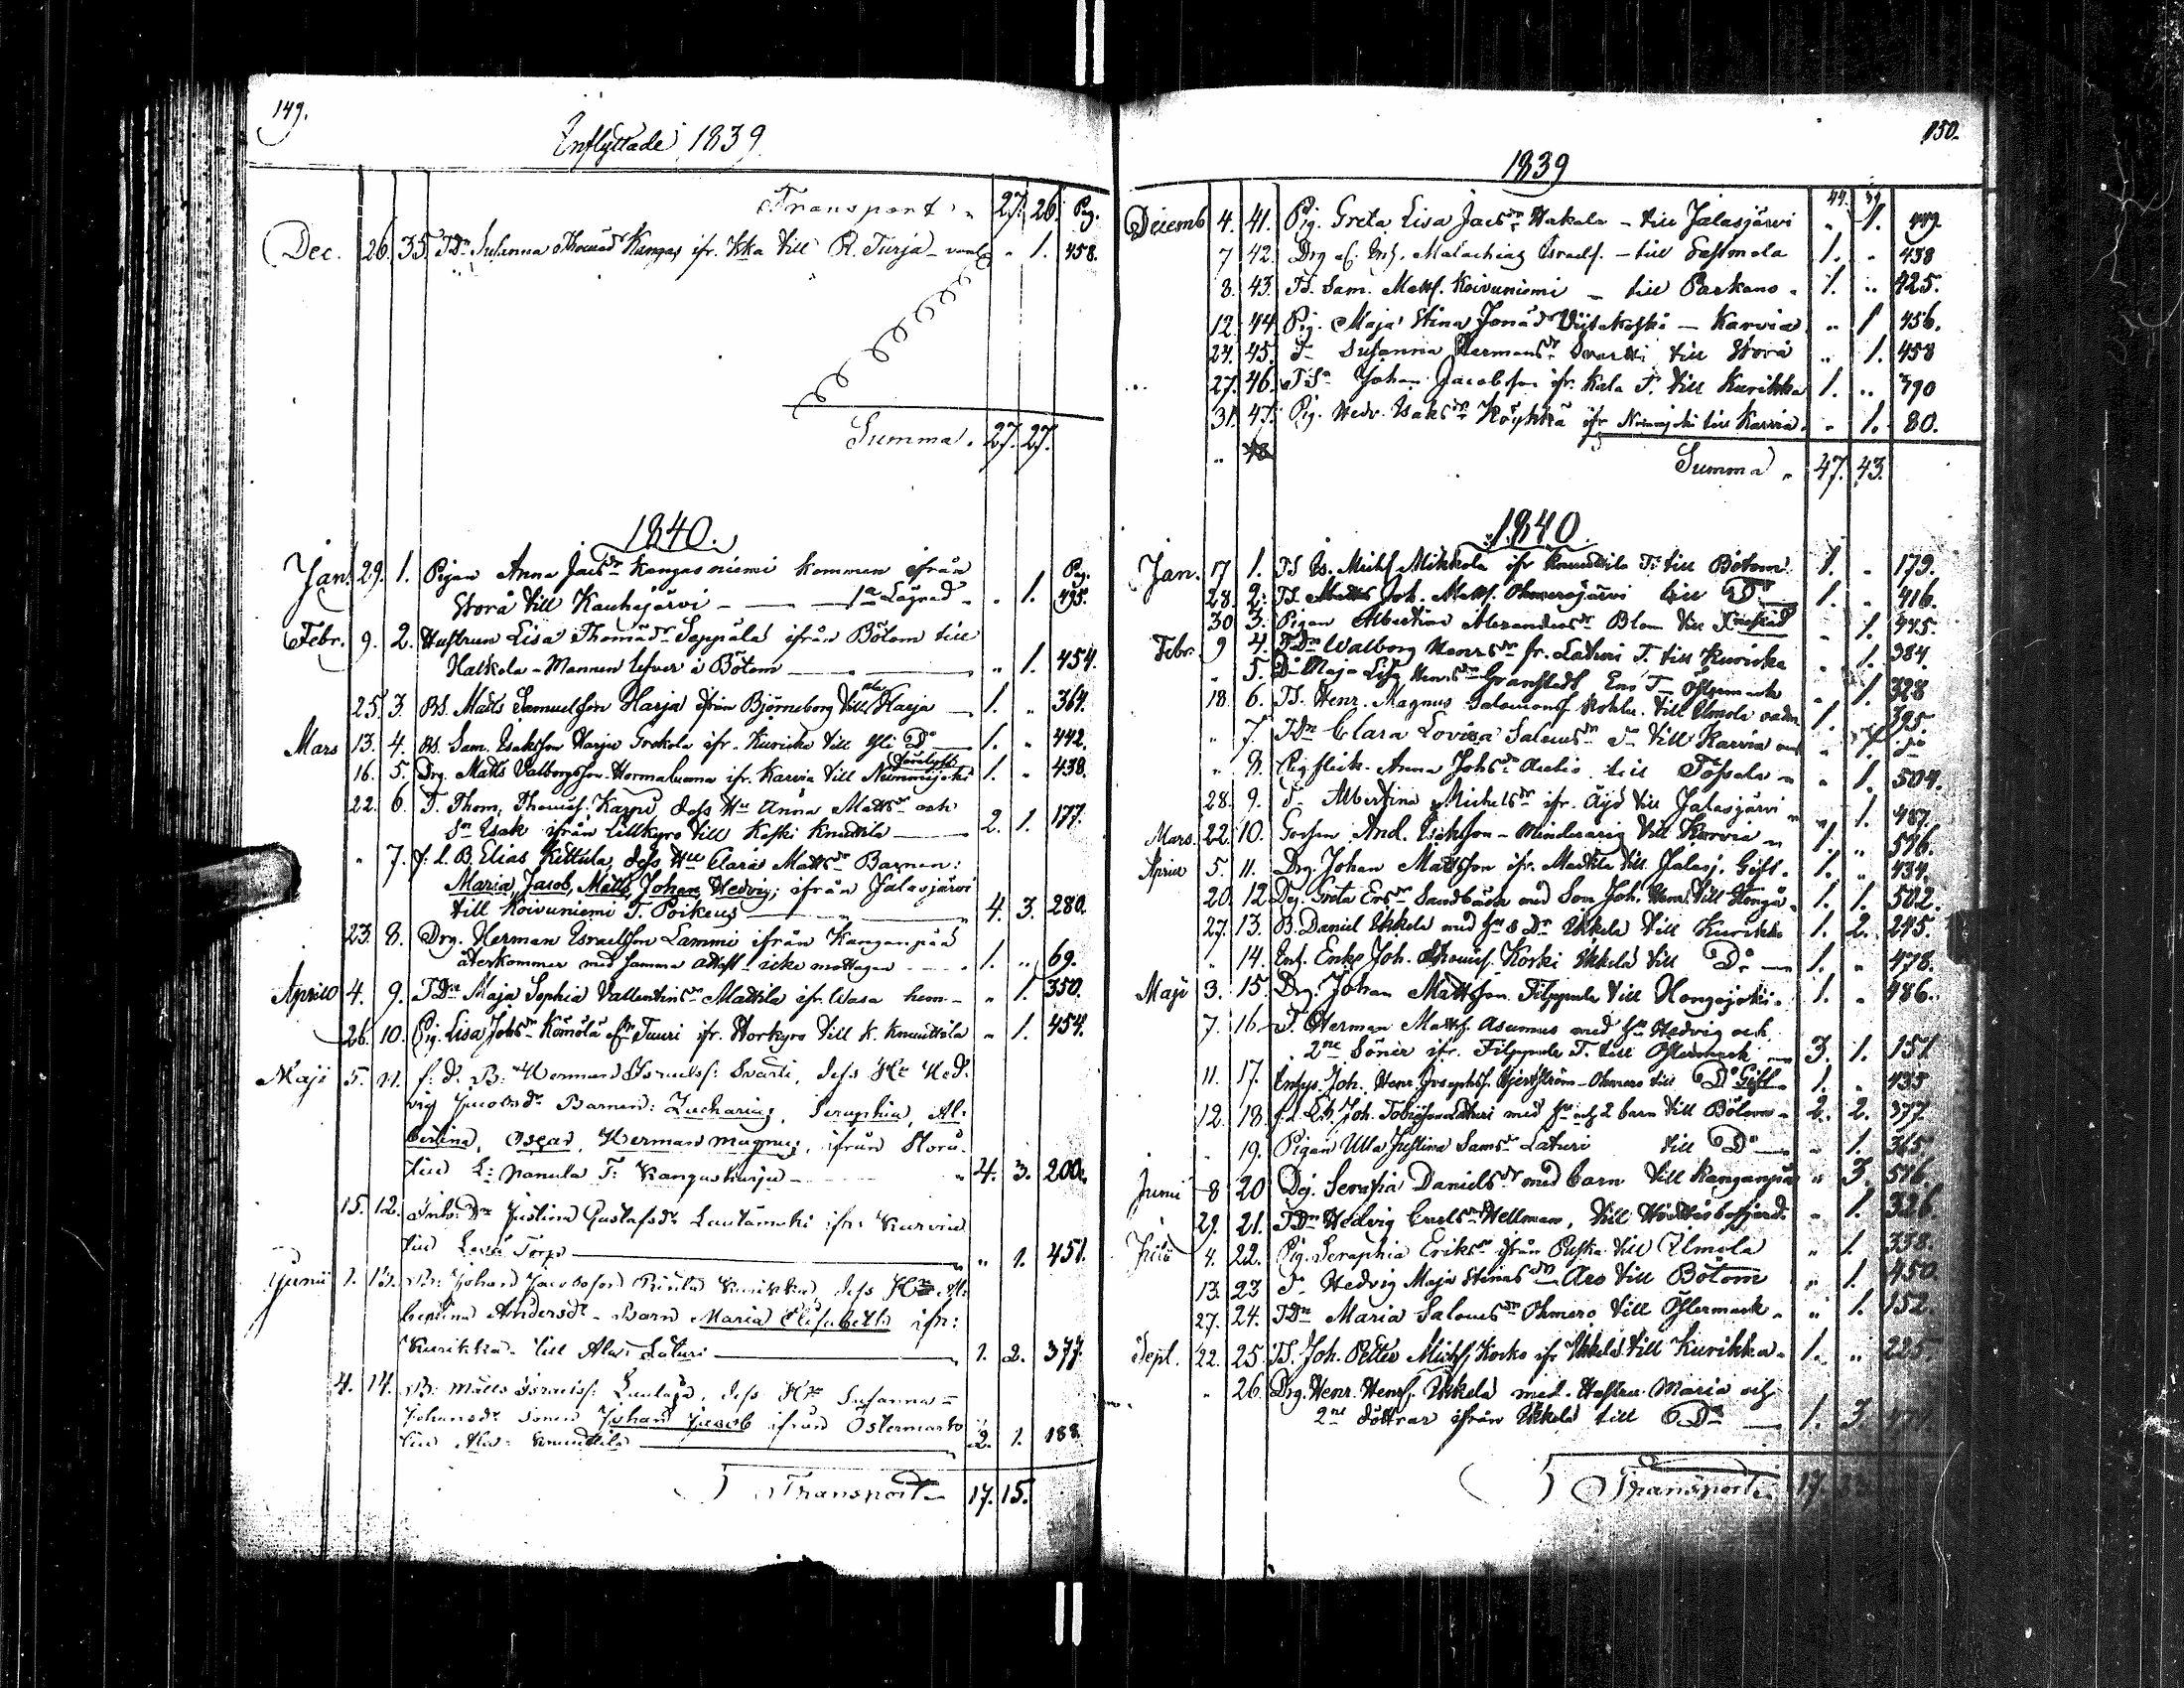 149.
Inflyttade 1839
Transport 27. 26. Pag.
Dec. 26. 35. TDr Susanna Thomasdr Kangas ifr. Ikka till R. Turja 1. 458.
Summa. 27. 27.
1840.
Jan. 29. 1. Pigan Anna Jacsdr Kangasniemi kommen ifrån Pag.
Storå till Kauhajärvi 1. 495.
Febr. 9. 2. Hustrun Lisa Thomasdr Seppälä ifrån Bötom till
Hakkola - Mannen lefver i Bötom 1. 454.
25. 3. BS. Matts Samuelsson Harja ifrån Björneborg till Harja 1. 364.
Mars 13. 4. BS. Sam. Isaksson Harju ifr. Kurikka till Yli Do 1. 442.
16. 5. Drg. Matts Valborgsson Hormaluoma ifr. Karvia till Nummijoki 1. 438.
22. 6. T. Thom. Thomass. Karpi dess Hu Anna Mattsdr och
Sn Isak ifrån Lillkyro till Koski Knuuttila 2. 1. 177.
7. f. d. B. Elias Kettula, dess Hu Clara Mattsdr Barnen:
Maria, Jacob, Matts, Johan, Hedvig; ifrån Jalasjärvi
till Koivuniemi T. Poikeus 4. 3. 280.
23. 8. Drg. Herman Israelsson Lammi ifrån Kanganpää
återkommer med samma attest - icke mottagen 1. 69.
Aprill 4. 9. TDr Maja Sophia Vallentinsdr Mattila ifr. Wasa hem 1. 350.
26. 10. Pig. Lisa Jobsdr Tuuri ifr. Storkyro till K. Knuuttila 1. 454.
Maji 5. 11. f. d. B. Herman Israelss. Svarti, dess Hu Hed-
vig Jacobsdr Barnen: Zacharias, Seraphia, Al-
bertina, Oscar, Herman Magnus, ifrån Storå
till L. Panula T. Kangasharju 4. 3. 200.
15. 12. Dr Justina Gustafsdr Lautamaki ifr. Karvia
till Torp 1. 451.
Junii 1. 13. Br. Johan Jacobsson Rinta Kurikka, dess Hu Al-
bertina Andersdr - Barn Maria Elisabeth ifr.
Kurikka till Ala Laturi 1. 2. 377.
4. 14. Br. Matts Israelss. dess Hu Susanna
Johansdr Sonen Johan Jacob ifrån Östermark
till Ala Knuuttila 2. 1. 188
Transport 17. 15.
150.
1839
Decemb 4. 41. Pig. Greta Lisa Jacsdr Hakala - till Jalasjärvi 1.
7 42. Drg Malachias Israels. - till 1. 438
8. 43. TS. Sam. Matts. Koivuniemi - till Parkano 1. 425.
12. 44 Pig. Maja Stina Jonasdr - Karvia 1 456.
24. 45. Do Susanna Hermansdr Svartti till Storå 1. 458
27. 46. Johan Jacobsson ifr. Kala T. till Kurikka 1. 390
31. 47. Pig. Hedv. Isaksdr Köykkä ifr Nummijoki till Karvia 1. 80.
Summa 47. 43.
1840.
Jan. 17 1. TS Is. Michs Mikkola ifr Knuuttila T. till Bötom 1. 179.
28. 2. TS. Joh. Matts. till Do 1. 416.
30 3. Pigan Albertina Alexandersdr Blom till 1. 445.
Febr. 9 4. TDr Walborg Henrsdr fr. Laturi T. till Kurikka 1. 384.
5. Do Maja Lisa Henrsdr Granstedt Östermark 1. 328
18. 6. TS. Henr. Magnus Salomonss till Ilmola 1. 395.
7. TDr Clara Lovisa Salomsdr till Karvia 1. Do
8. Pigflick. Anna Johsdr till 1. 504.
28. 9. Do Albertina Michelsdr ifr. Äijö till Jalasjärvi 1. 487.
Mars. 22. 10. Gossen And. Isaksson - Minderårig till Karvia 1. 596.
Aprill 5. 11. Drg. Johan Mattsson ifr. Mattila till Jalasj. Gift. 1. 434.
20. 12 Drg. Greta Ersdr Sandbäck med Son Joh. Henr. till Hongå 1. 1. 502.
27. 13. B. Daniel Ikkela med Hu & Dr Ikkela till Kurikka 1. 2. 245.
14. Enk. Joh. Thomass. Korki Ikkela till Do 1. 478.
Maji 3. 15. Drg. Johan Mattsson Filppula till Hongojoki 1. 486.
7. 16. T. Herman Matts. Asumus med Hu Hedvig och
2ne Söner ifr. Filppula T. till Östermark 3. 1. 151
11. 17. Joh. Henr. Josephss. Hjertström - till Do Gift 1. 435
12. 18. f.d. Joh. Tobiasson Laturi med Hu och 2 barn till Bötom 2. 2. 377
19. Pigan Ulla Justina Samsdr Laturi till Do 1. 365.
Junii 8 20 Drg. Serafia Danielsdr med barn till Kanganpää 3. 516.
29. 21. TDr Hedvig Carlsdr Hellman, till 1. 326.
Julii 4. 22. Pig. Seraphia Eriksdr ifrån Puska till Ilmola 1. 338.
13. 23 Do Hedvig Maja Stinasdr Aro till Bötom 1. 450.
27. 24. TDr Maria Salomsdr Ohmero till Östermark 1. 152.
Sept. 22. 25. TS. Joh. Petter Michs. Korko ifr Ikkela till Kurikka 1. 225.
26. Drg. Henr. Henrs. Ikkela med Hustru Maria och
2ne döttrar ifrån Ikkela till Do 1. 3.
Transport 17.